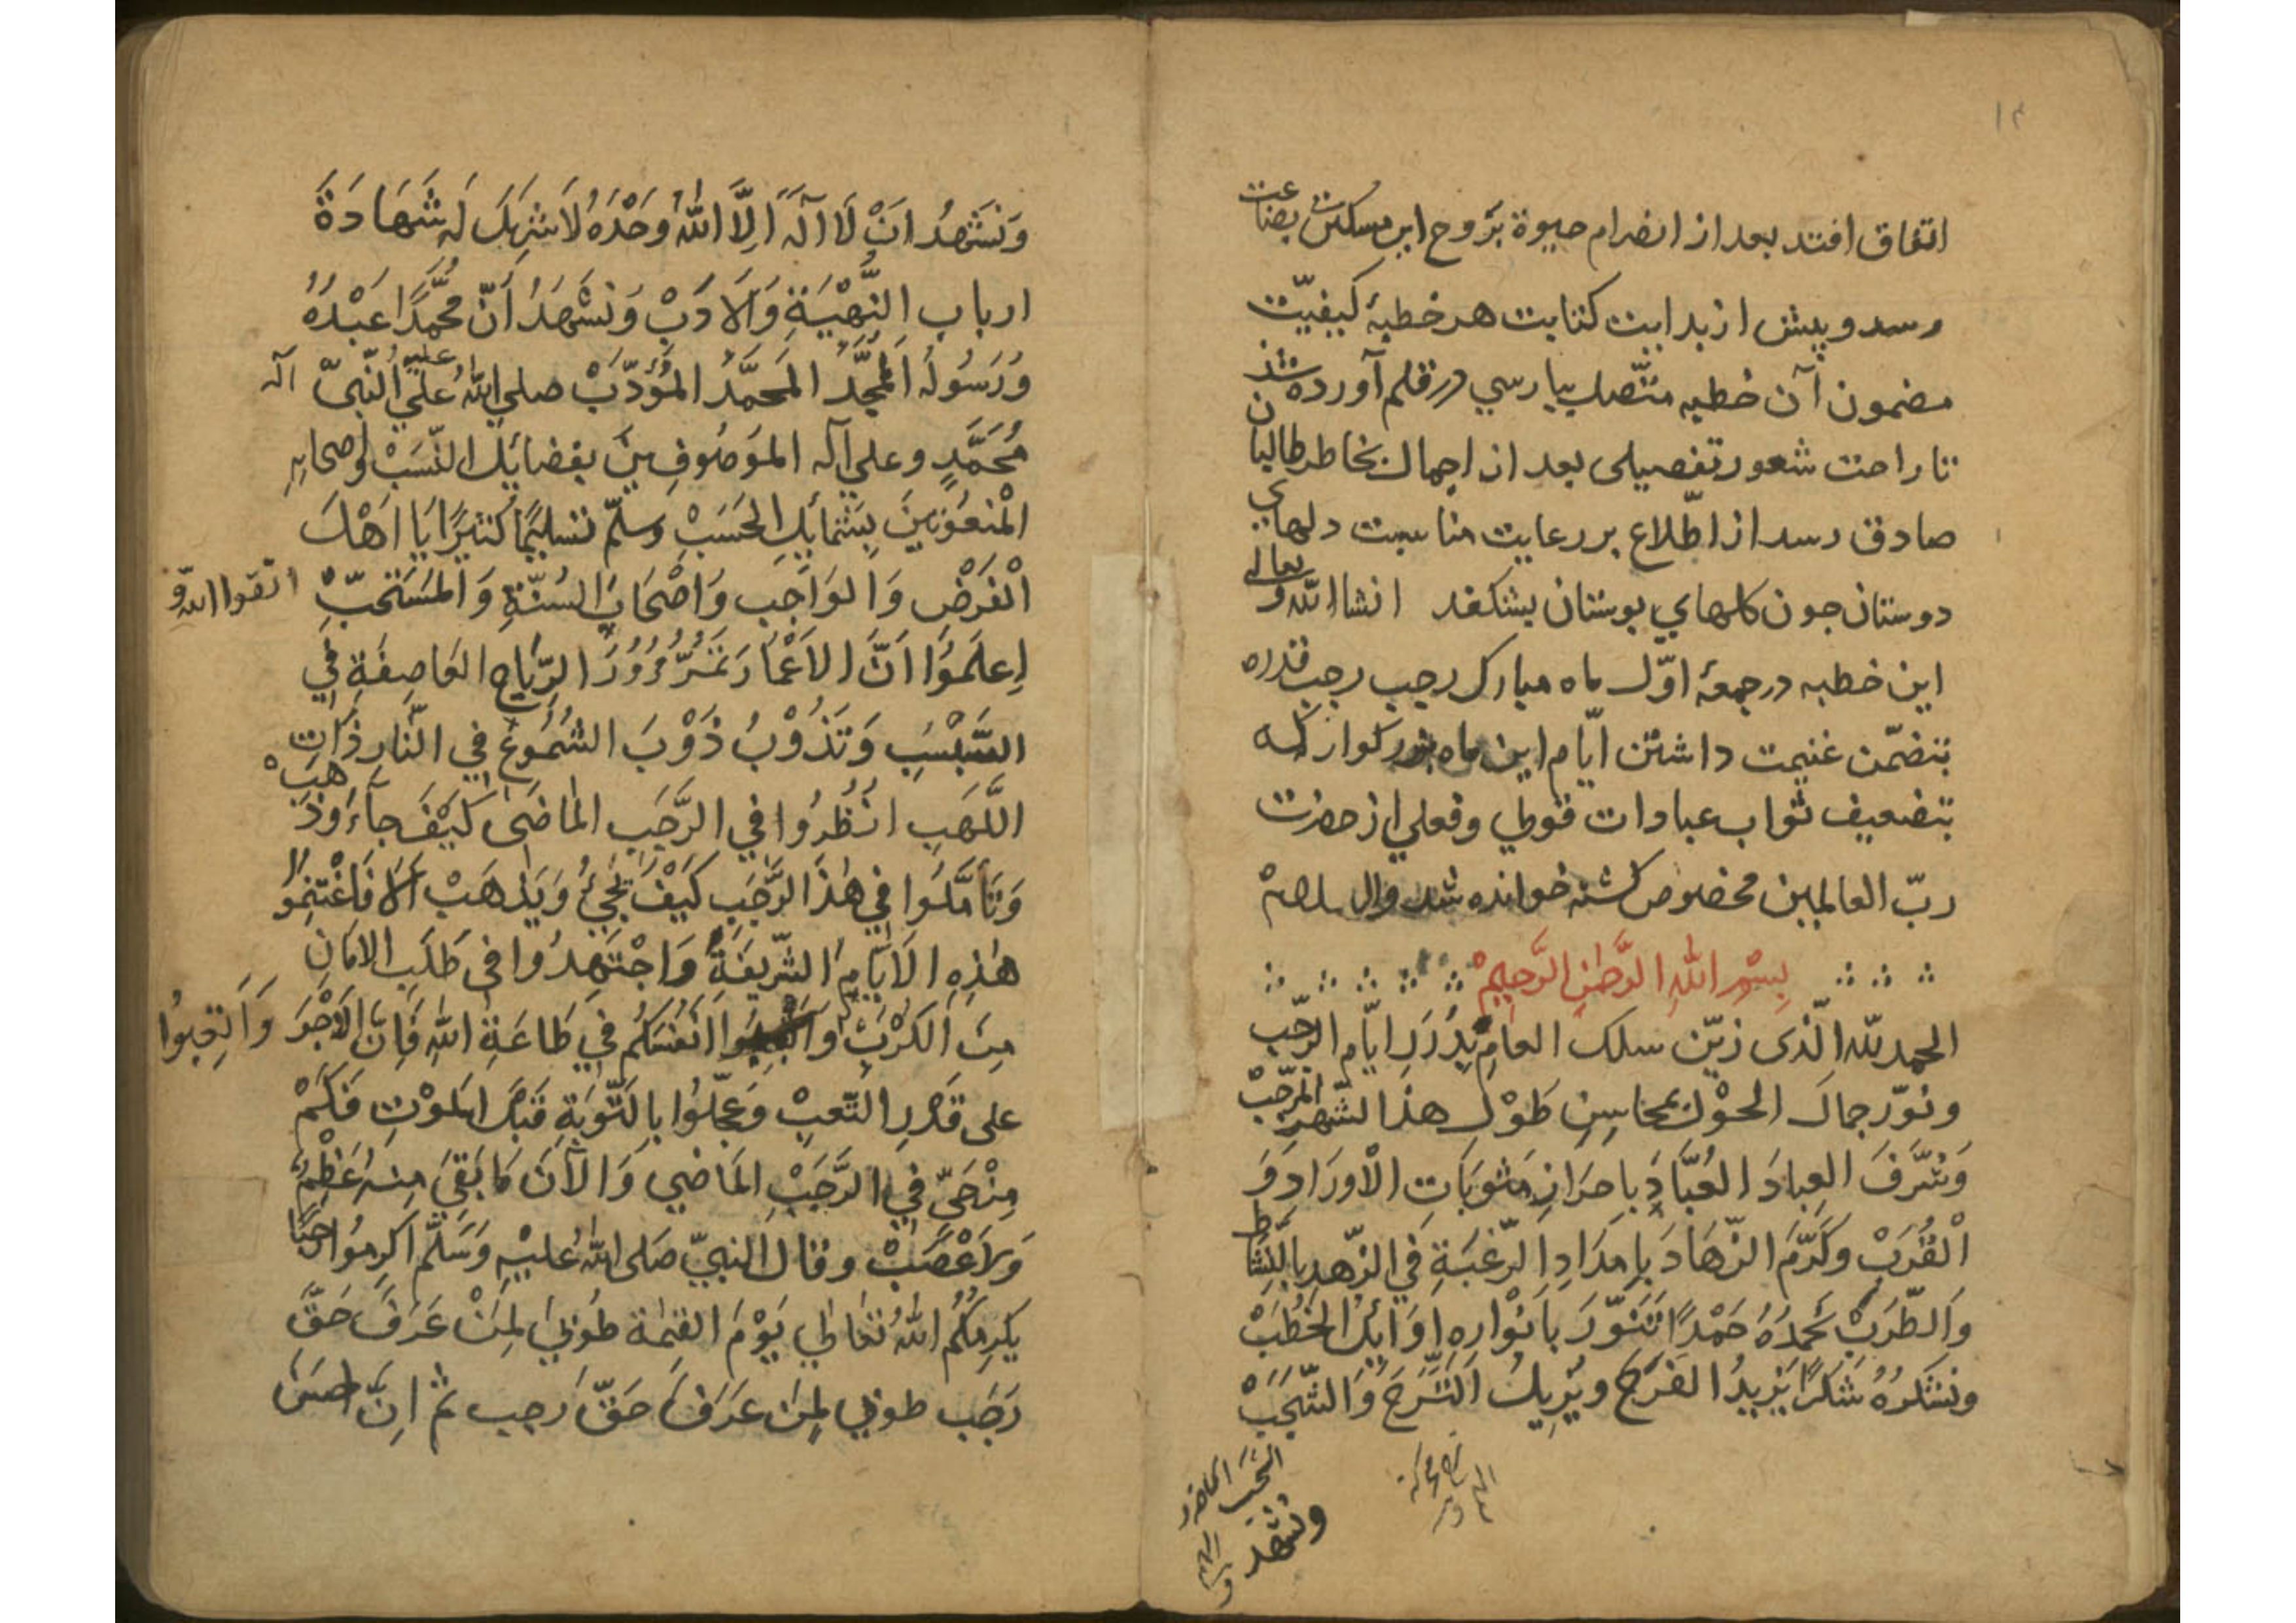 ۱۲
اتفاق افتد بعد از انضرام حیوة بروح این مسکین بضاعت
رسد و پیش از بدایت کتابت هر خطبهٔ کیفیّت
مضمون آن خطبه متّصل بپارسي در قلم آورده شد
تا راحت شعور تفصیلی بعد از اجمال بخاطر طالبان
صادق رسد از اطّلاع بر رعایت مناسبت دلهاي
دوستان جون کلهاي بوستان بشکفد انشاالله تعالی و
این خطبه در جمعهٔ اوّل ماه مبارک رجب رجب قدره
بتضمّن غنیمت داشتن ایّام این ماه بزرکوار که
بتضعیف ثواب عبادات قولي وفعلي از حضرت
ربّ العالمین مخصوص کشته خوانده شد
بِسْمِ اللهِ الرَّحْمٰنِ الرَّحِيمْ
الحمد للّه الّذى زيّن سلك العامِ بِدُرَرِ ايّام الرّجب
ونوّر جمالَ الحوْل بمحاسِنِ طَوْلِ هذا الشّهرِ المرجّبْ
وَشَرَّفَ العِبادَ العُبَّادَ باحرَازِ مَثوبَاتِ الْاورَادِ وَ
الْقُرَبْ وكَرَّمَ الزّهادَ بِامدَادِ الرّغبَةِ فِي الزّهدِ بالنَّشاط
وَالطَّرَبْ نَحمدُهُ حَمْدًا تَتَنَوّرَ بِاَنْوارِهِ اوَائِلُ الخُطَبْ
ونشكرُهُ شكرًا يَزِيدُ الفَرَحَ ويُزِيلُ التَّرَحَ وَالشَّجَبْ
ونشهد
وَنَشَهدُ انْ لَا الٰهَ اِلَّا اللهُ وحْدَهُ لَا شريكَ لَه شَهَادَةَ
ارباب النُّهْيَةِ وَالادَبْ وَنَشْهَدُ اَنّ محمَّدًا عَبْدُهُ
وَرَسُولهُ الممجَّدُ المحمَّدُ المؤدّبْ صلى اللهُ عليه علَي النّبىّ آله
مُحَمَّدٍ وعلي آله الموَصُوفِينَ بفضائلِ النّسَبْ واصحابِهِ
الْمنعوُتينَ بِشَمائِلِ الحَسَبْ وسلّم تسليمًا كثيرًا اَيا اَهْلَ
الْفَرَضِ وَالوَاجَبِ وَاصْحَابَ السُنّةِ وَالمُستَحبّ اتّقوا اللهَ و
اِعلَموُا انَّ الاَعْمَارَ تَمُرُّ مُرُورَ الرّيَاحِ العَاصِفَةِ فِي
السَّبْسَبِ وَتَذُوْبُ ذَوْبَ الشُّمُوعِ فِي النّارِ ذَات
اللَّهَبِ انْظُرُوا فِي الرَّجَبِ الماضى كيْفَ جآءَ وَذَهَبْ
وَتَأمَّلُوا فِي هٰذَا الرَّجَبِ كيْفَ يَجِيْ وَيَذهَبْ اَلا فَاغْتنِمُوا
هٰذِهِ الاَيّامِ الشّريفَةِ وَاجْتَهِدُوا فى طَلَبِ الامَانِ
مِنَ الكُرَبْ و انفُسَكُم فِي طَاعَةِ اللهِ فَاِنّ الاَجْرَ وَاَتعِبُوا
على قَدرِ التّعبِ وَعَجّلوُا بِالتّوبَةِ قَبْلَ الموْتِ فكَمْ
مِنْ حَيّ فِي الرَّجَبْ الماضي وَالآنَ مَا بَقِيَ مِنهُ عَظْمٌ
وَلاَ عَصَبْ وقال النبيّ صَلى اللهُ عليْهِ وَسَلَّمَ اكرِموُا رجبًا
يكرِمكُم اللهُ تعَالي يَوْمَ القيمة طوُبي لِمنْ عَرَفَ حَقَّ
رَجَب طوبي لِمن عَرَفَ حَقّ رجب ثم اِنّ احسَنَ